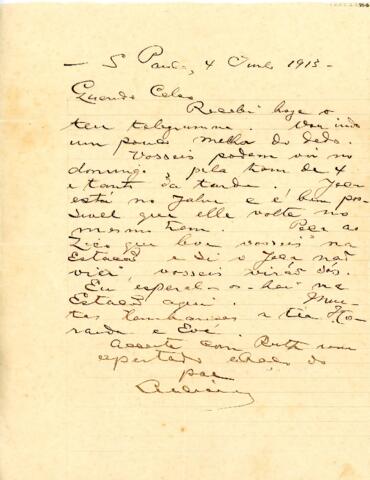 — S. Paulo, 4 Junho 1915 —
Querido Celso
Recebi hoje o
teu telegramma. Vou indo
um pouco melhor do dedo.
Vosseis podem vir no
domingo, pelo trem de 4
e tanto da tarde. Joça
está no Jahu e é bem pos-
sivel que elle volte no
mesmo trem. Peça ao
Zico que leve vosseis na
Estação e si o Joça não
vier, vosseis virão sós.
Eu esperal-os-hei na
Estação aqui. Mui-
tas lembranças a tia
e
Acceite com Ruth um
apertado abraço do
pae